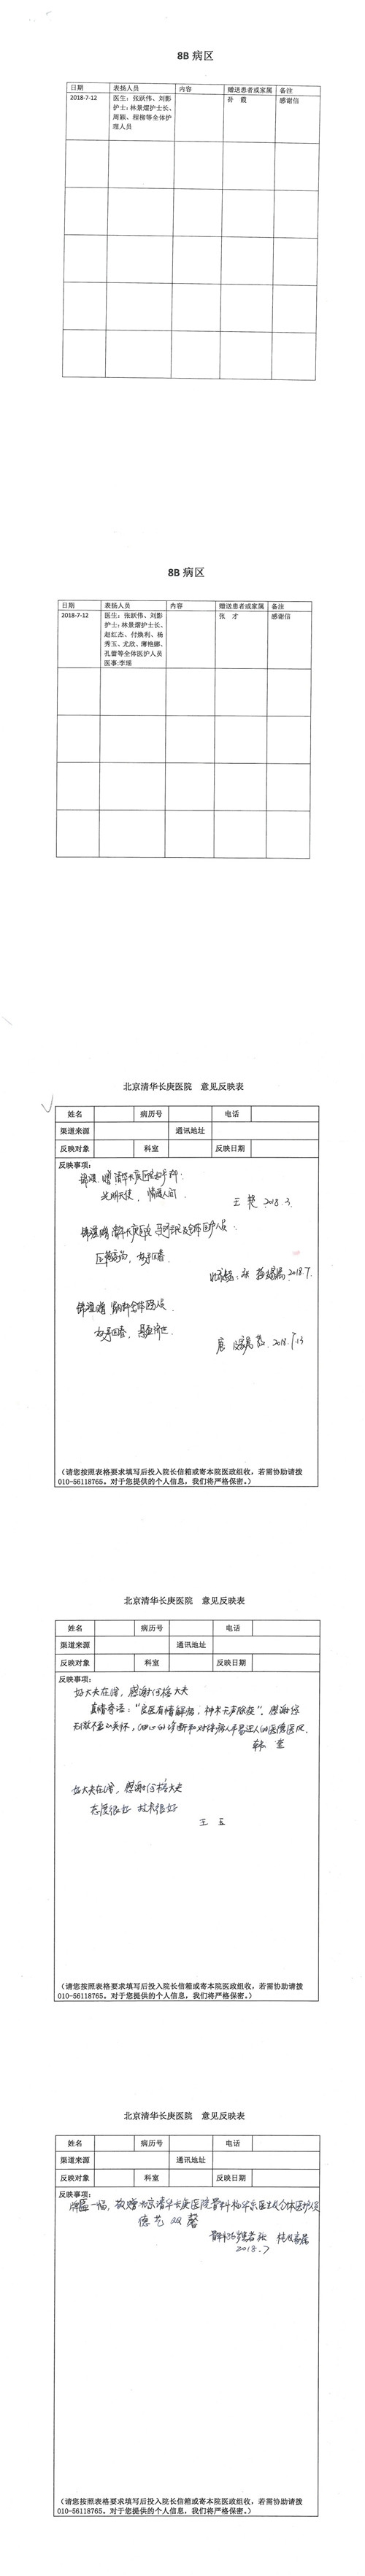 8B 病区
日期 表扬人员 内容 赠送患者或家属 备注
2018-7-12 医生：张跃伟、刘影 孙 霞 感谢信
护士：林景熠护士长、
周颖、程柳等全体护
理人员
8B 病区
日期 表扬人员 内容 赠送患者或家属 备注
2018-7-12 医生：张跃伟、刘影 张 才 感谢信
护士：林景熠护士长、
赵红杰、付焕利、杨
秀玉、尤欣、薄艳娜、
孔蕾等全体医护人员
医事:李瑶
北京清华长庚医院 意见反映表
姓名 病历号 电话
渠道来源 通讯地址
反映对象 科室 反映日期
反映事项：
锦旗 赠 清华长庚医院
光明天使，情满人间
王 2018.3.
锦旗赠 清华长庚医院 全体医护人员
医德高尚，妙手回春
2018.7.
锦旗赠 全体医护人员
妙手回春，
2018.7.13
（请您按照表格要求填写后投入院长信箱或寄本院医政组收，若需协助请拨
010-56118765。对于您提供的个人信息，我们将严格保密。）
北京清华长庚医院 意见反映表
姓名 病历号 电话
渠道来源 通讯地址
反映对象 科室 反映日期
反映事项：
好大夫在线，感谢 大夫
真情寄语：“良医有情解病，神术无声除疾”。感谢您
无微不至的关怀，细心的诊断和对待病人平易近人的医德医风。
韩 堂
好大夫在线，感谢 大夫
态度很好 技术很好
王 玉
（请您按照表格要求填写后投入院长信箱或寄本院医政组收，若需协助请拨
010-56118765。对于您提供的个人信息，我们将严格保密。）
北京清华长庚医院 意见反映表
姓名 病历号 电话
渠道来源 通讯地址
反映对象 科室 反映日期
反映事项：
牌匾一幅，敬赠北京清华长庚医院骨科 医生及全体医护人员
德艺双馨
2018.7
（请您按照表格要求填写后投入院长信箱或寄本院医政组收，若需协助请拨
010-56118765。对于您提供的个人信息，我们将严格保密。）